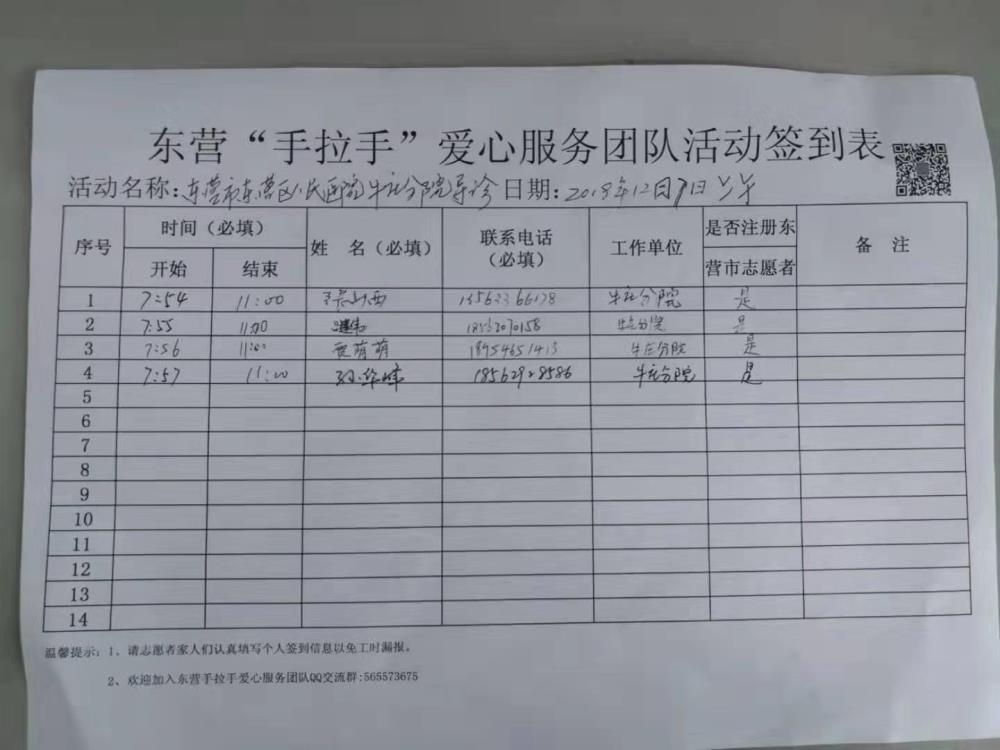 东营“手拉手”爱心服务团队活动签到表
活动名称：东营市东营区人民医院牛庄分院导诊 日期：2018年12月7日上午
序号 时间（必填） 姓 名（必填） 联系电话（必填） 工作单位 是否注册东营市志愿者 备 注
开始 结束
1 7:54 11:00 牛庄分院 是
2 7:55 11:00 牛庄分院 是
3 7:56 11:00 贾萌萌 18954651413 牛庄分院 是
4 7:57 11:00 牛庄分院 是
5
6
7
8
9
10
11
12
13
14
温馨提示：1、请志愿者家人们认真填写个人签到信息以免工时漏报。
2、欢迎加入东营手拉手爱心服务团队QQ交流群:565573675